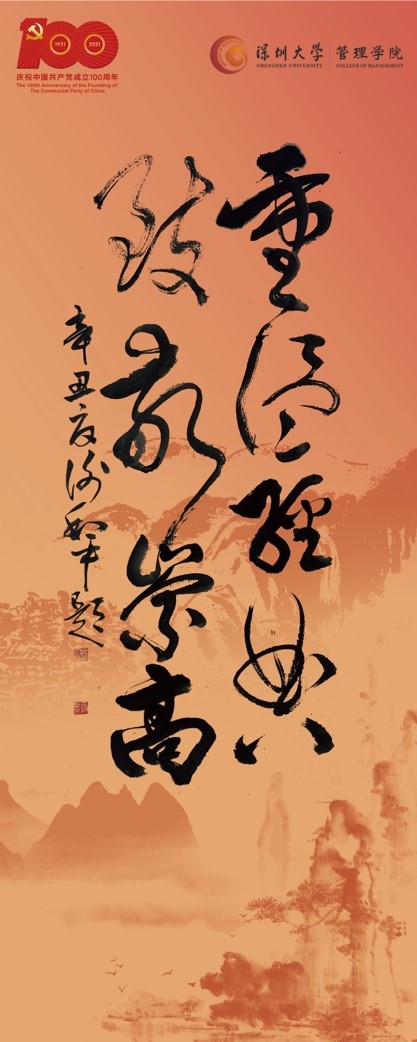 100
1921
2021
庆祝中国共产党成立100周年
The 100th Anniversary of the Founding of
The Communist Party of China
深圳大学
SHENZHEN UNIVERSITY
管理学院
COLLEGE OF MANAGEMENT
重温經典
致敬崇高
辛丑夏谢和平题